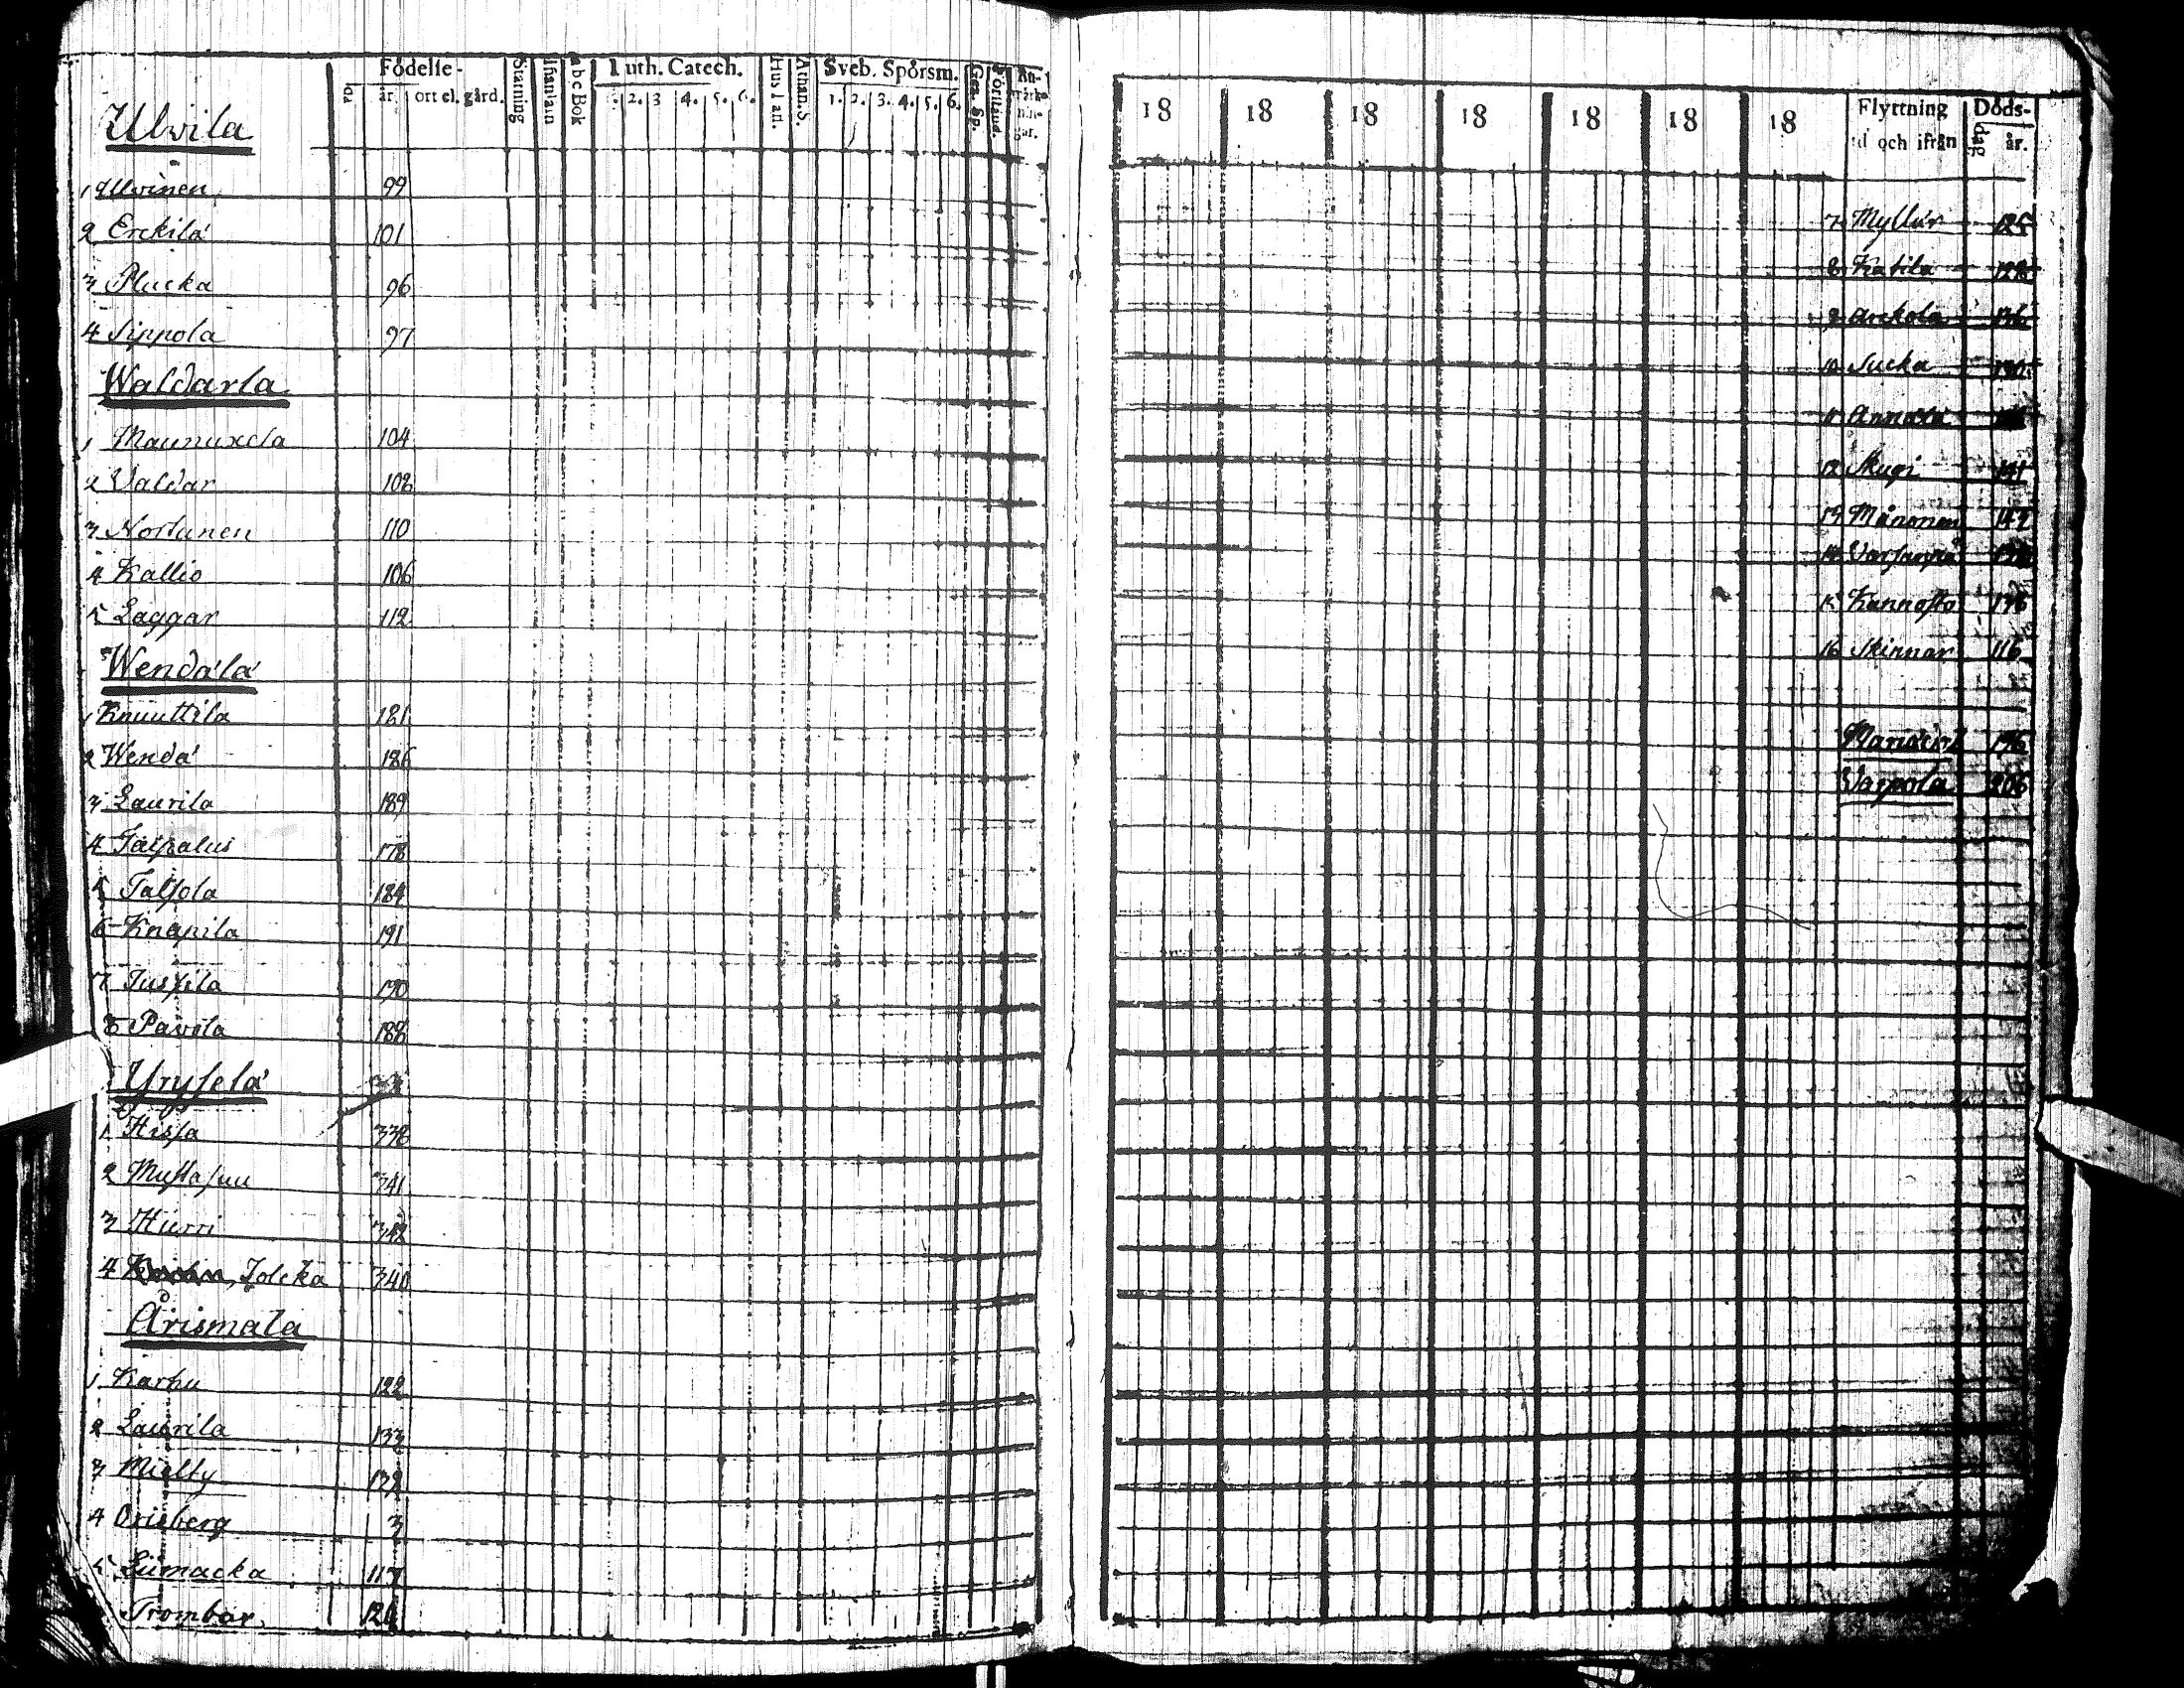 Födelse-
år. ort el. gård.
Stafning
Innanläsn.
abc Bok
Luth. Catech.
1. 2. 3 4. 5. 6.
Hustafl.
Athan. S.
Sveb. Spörsm.
1. 2. 3. 4. 5. 6.
Ulvila
1 Ulvinen 99
2 Erckilä 101
3 Plucka 96
4 Sippola 97
Waldarla
1 Maunuxela 104
2 Valdar 108
3 Nortanen 110
4 Kallio 106
5 Laggar 112
Wendälä
1 Knuuttila 181
2 Wendä 186
3 Laurila 189
4 178
5 Talsola 184
6 Knapila 191
7 Jussila 190
8 Pavila 188
Yrysselä
1 Hissa 338
2 Mustasuu 341
3 Hurri 342
4 Jolcka 340
Årismala
1 Karhu 122
2 Laurila 133
3 Mielty 132
4 Orisberg 3
5 Liimacka 117
Trombar 126
18 18 18 18 18 18 18
Flyttning
till och ifrån
Döds-
dag år.
7 Myllär 125
8 Katila 128
9 Arckola
10 Sucka 130
11 Annala
12 Skugi 141
13 Månonen 142
14
15 Kannosto
16 Skinnar 116
196
Vaspola 206